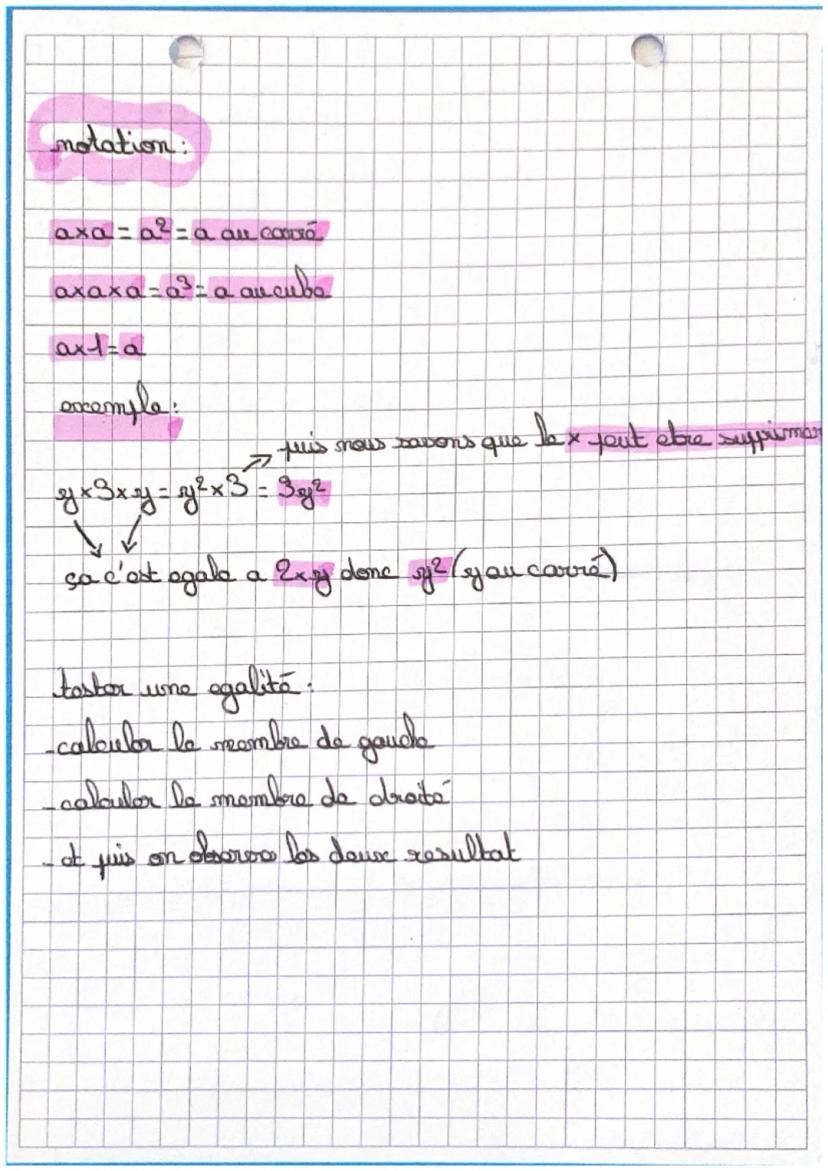 notation :
a×a = a² = a au carré
a×a×a = a³ = a au cube
a×1 = a
exemple :
puis nous savons que le × peut etre supprimer
y×3×y = y²×3 = 3y²
ça c'est egale a 2×y donc y² (y au carré)
tester une egalité :
- calculer le membre de gauche
- calculer le membre de droité
- et puis on observe les deux resultat